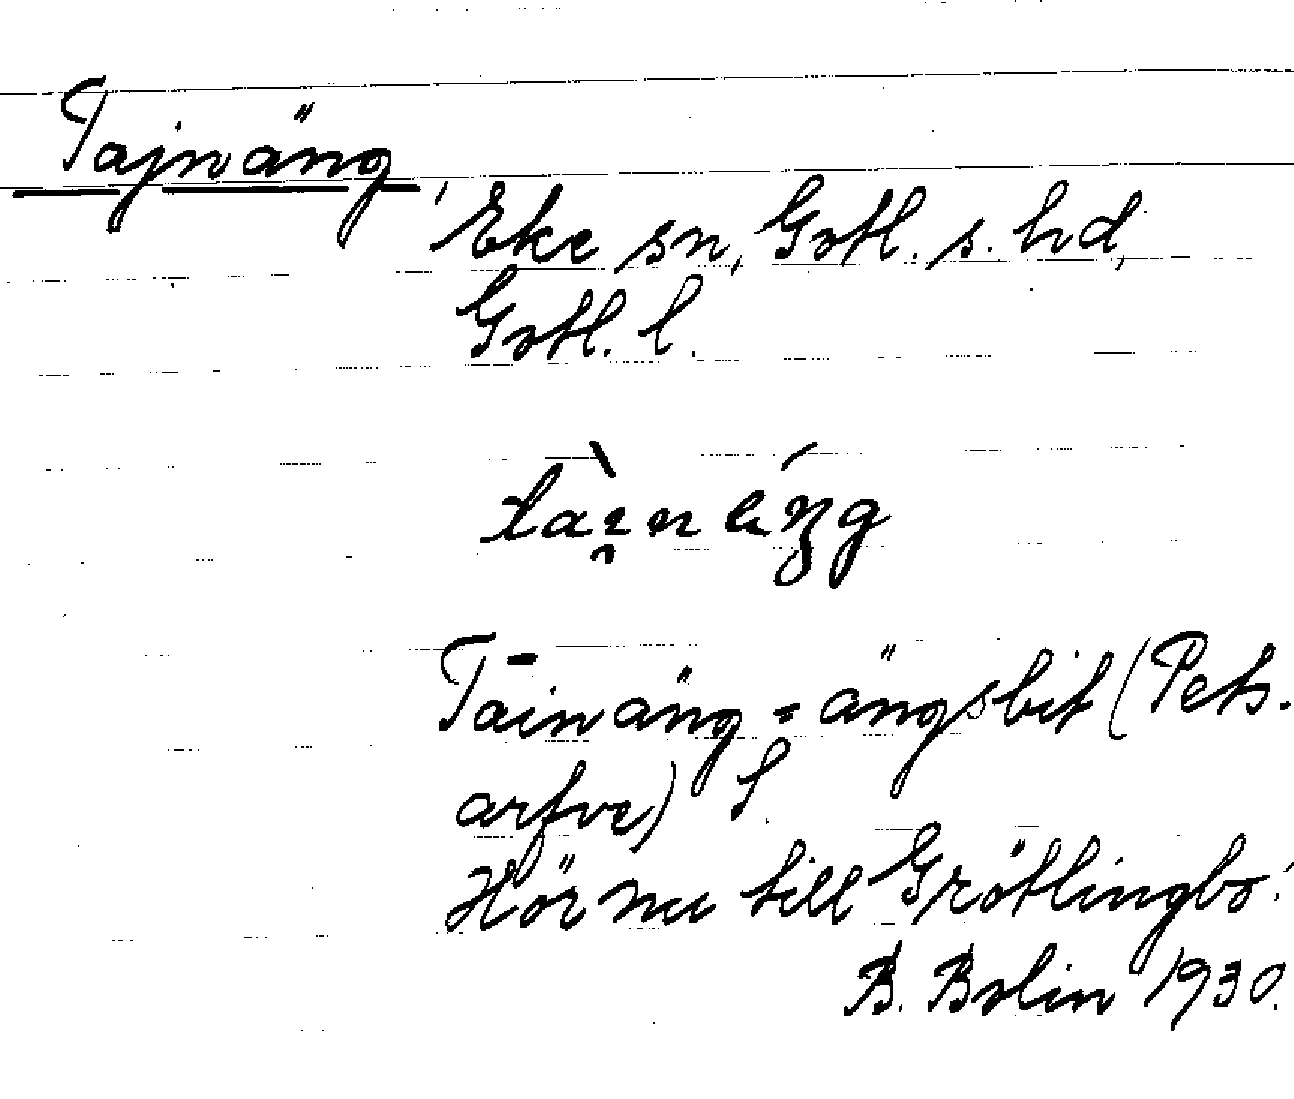 Tajnäng
Eke sn, Gotl. s. hd,
Gotl. l.
Tāinäng = ängsbit (Pets.
arfve)
Hör nu till Grötlingbo.
B. Bolin 1930.